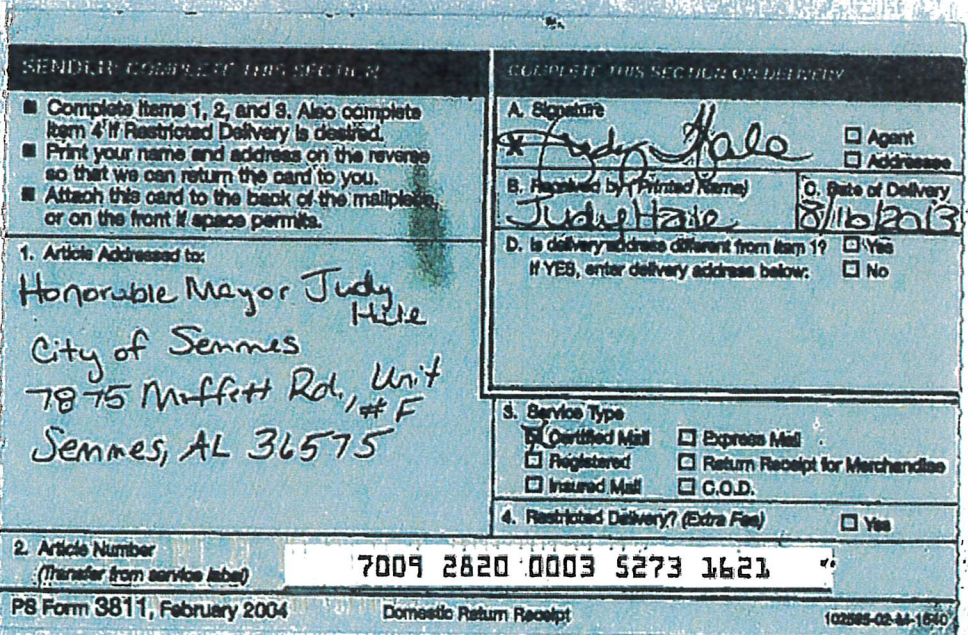 SENDER: COMPLETE THIS SECTION
■ Complete items 1, 2, and 3. Also complete
item 4 if Restricted Delivery is desired.
■ Print your name and address on the reverse
so that we can return the card to you.
■ Attach this card to the back of the mailpiece,
or on the front if space permits.
1. Article Addressed to:
Honorable Mayor Judy
Hale
City of Semmes
7875 Moffett Rd., Unit
#F
Semmes, AL 36575
2. Article Number
(Transfer from service label)
7009 2820 0003 5273 1621
COMPLETE THIS SECTION ON DELIVERY
A. Signature
X Judy Hale
□ Agent
□ Addressee
B. Received by (Printed Name)
Judy Hale
C. Date of Delivery
8/16/2013
D. Is delivery address different from item 1? □ Yes
If YES, enter delivery address below: □ No
3. Service Type
Certified Mail □ Express Mail
□ Registered □ Return Receipt for Merchandise
□ Insured Mail □ C.O.D.
4. Restricted Delivery? (Extra Fee) □ Yes
PS Form 3811, February 2004 Domestic Return Receipt 102595-02-M-1540